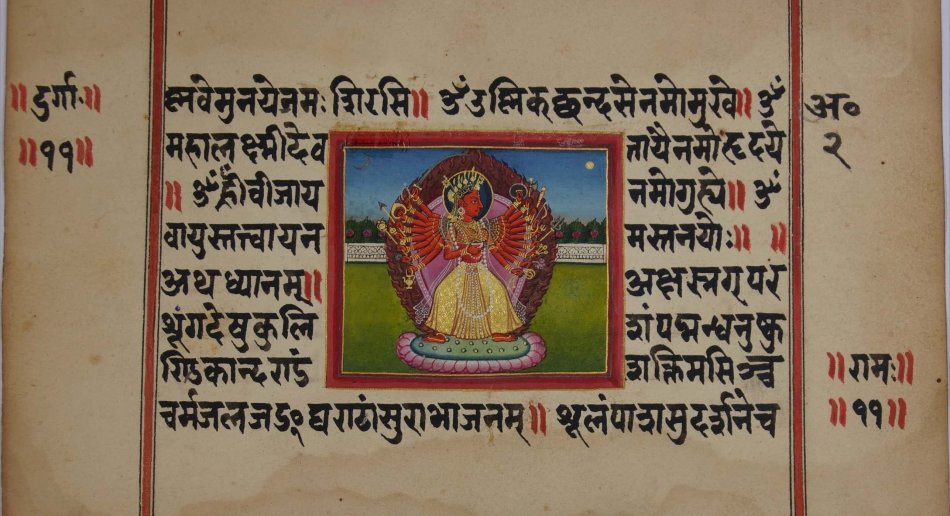 ॥ दुर्गाः॥
॥ ११॥
ह्नवेमुनयेनमः शिरसि॥ ॐउष्णिकछन्दसेनमोमुखे॥ ॐ
महालक्ष्मीदेव तायैनमोहृदये
॥ ॐह्रींवीजाय नमोगुह्ये॥ ॐ
वायुस्तत्त्वायन मस्तनयोः॥ ॥
अथध्यानम्॥ अक्षस्रगपर
शूंगदेषुकुलि शंपद्मन्धनुष्कु
ण्डिकान्दण्डं शक्तिमसिञ्च
चर्मजलजङ्घण्टांसुराभाजनम्॥ शूलंपाशसुदर्शनेच
अ॰
२
॥ रामः॥
॥ ११॥